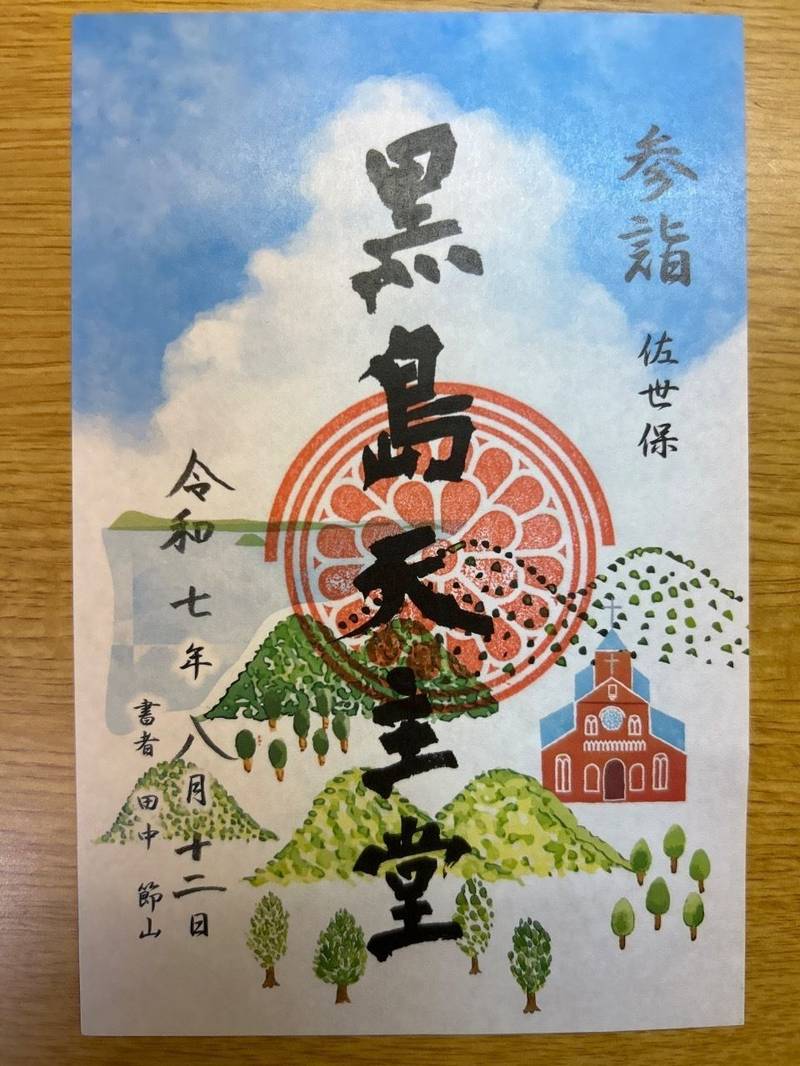 参詣 佐世保
黒島天主堂
令和七年八月十二日
書者 田中 節山